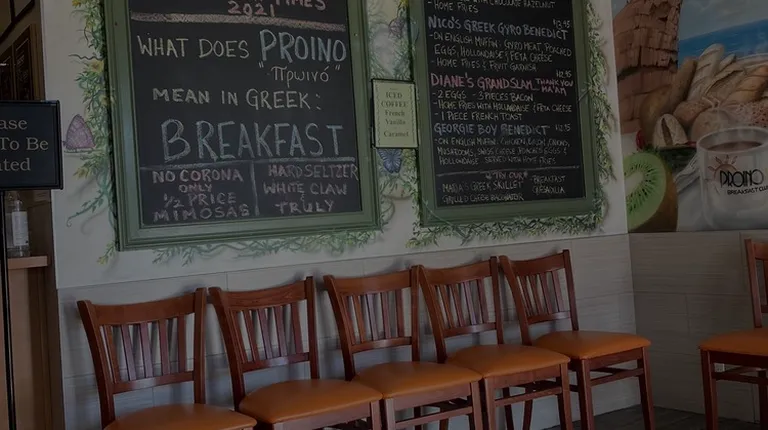 ase
To Be
ted
TIMES
2021
WHAT DOES PROINO
"Πρωινό"
MEAN IN GREEK:
BREAKFAST
NO CORONA
ONLY
1/2 PRICE
MIMOSAS
HARD SELTZER
WHITE CLAW
TRULY
ICED
COFFEE
French
Vanilla
Caramel
HOME FRIES
NICO'S GREEK GYRO BENEDICT
-ON ENGLISH MUFFIN, GYRO MEAT, POACHED
EGGS, HOLLANDAISE & FETA CHEESE
- HOME FRIES & FRUIT GARNISH
DIANE'S GRANDSLAM - THANK YOU
MA'AM
- 2 EGGS - 3 PIECES BACON
- HOME FRIES WITH HOLLANDAISE & FETA CHEESE
- 1 PIECE FRENCH TOAST
GEORGIE BOY BENEDICT
-ON ENGLISH MUFFIN
HOLLANDAISE SERVED WITH HOME FRIES
"TRY OUR"
MARIA'S GREEK SKILLET
BREAKFAST
QUESADILLA
PROINO
BREAKFAST